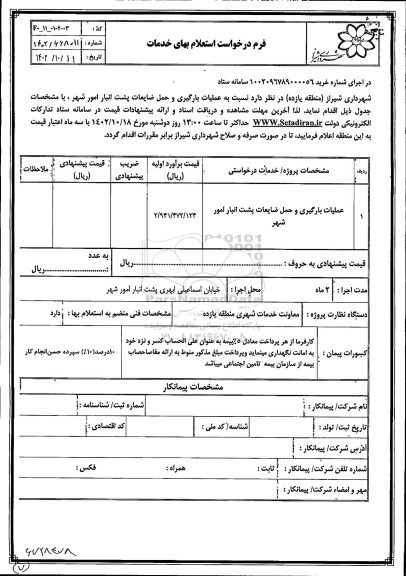 فرم درخواست استعلام بهای خدمات
کد :
شماره :
تاریخ : ۱۴۰۲/۱۰/۱۱
در اجرای شماره خرید ۱۰۰۲۰۹۶۷۸۹۰۰۰۰۵۶ سامانه ستاد
شهرداری شیراز (منطقه یازده) در نظر دارد نسبت به عملیات بارگیری و حمل ضایعات پشت انبار امور شهر ، با مشخصات
جدول ذیل اقدام نماید. لذا آخرین مهلت مشاهده و دریافت اسناد و ارائه پیشنهادات قیمت در سامانه ستاد تدارکات
الکترونیکی دولت WWW.Setadiran.ir حداکثر تا ساعت ۱۳:۰۰ روز دوشنبه مورخ ۱۴۰۲/۱۰/۱۸ با سه ماه اعتبار قیمت
به این منطقه اعلام فرمایید، تا در صورت صرفه و صلاح شهرداری شیراز برابر مقررات اقدام گردد.
ردیف مشخصات پروژه/ خدمات درخواستی قیمت برآورد اولیه (ریال) ضریب پیشنهادی قیمت پیشنهادی (ریال) ملاحظات
۱ عملیات بارگیری و حمل ضایعات پشت انبار امور شهر ۲/۹۴۱/۳۷۲/۱۲۳
قیمت پیشنهادی به حروف : ریال به عدد : ریال
مدت اجرا : ۲ ماه محل اجرا : خیابان اسماعیلی ابهری پشت انبار امور شهر
دستگاه نظارت پروژه : معاونت خدمات شهری منطقه یازده مشخصات فنی منضم به استعلام بها : دارد
کسورات پیمان : کارفرما از هر پرداخت معادل ۵٪ بیمه به عنوان علی الحساب کسر و نزد خود
به امانت نگهداری مینماید وپرداخت مبلغ مذکور منوط به ارائه مفاصاحساب
بیمه از سازمان بیمه تامین اجتماعی میباشد
۱۰درصد(۱۰٪) سپرده حسن‌انجام کار
مشخصات پیمانکار
نام شرکت/ پیمانکار : شماره ثبت/ شناسنامه :
تاریخ ثبت/ تولد : شناسه/ کد ملی : کد اقتصادی :
آدرس شرکت/ پیمانکار :
شماره تلفن شرکت/ پیمانکار : ثابت : همراه : فکس :
مهر و امضاء شرکت/ پیمانکار :
ParsNamadData